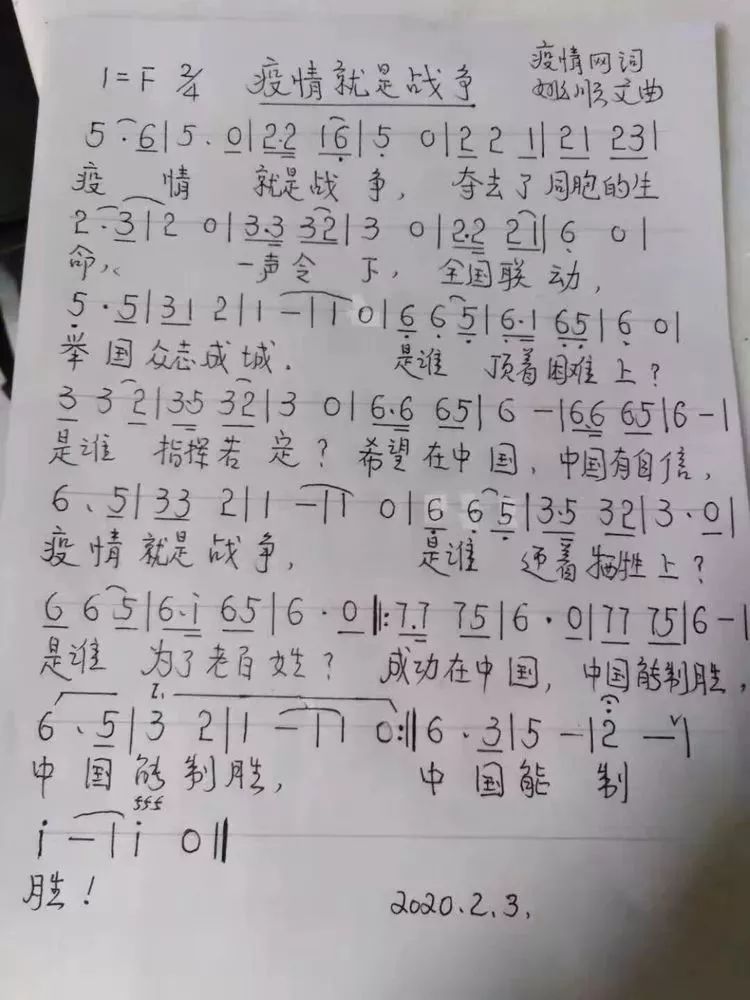 1=F 2/4 疫情就是战争 疫情网词
姚顺文曲
5 · 6 | 5 . 0 | 2·2 16 | 5 0 | 2 2 1 | 21 23 |
疫 情 就是战 争, 夺去了同胞的生
2 · 3 | 2 0 | 3·3 32 | 3 0 | 2·2 21 | 6 0 |
命, 一声令 下, 全国联 动,
5 · 5 | 31 2 | 1 – | 1 0 | 6 6 5 | 6·1 65 | 6 0 |
举 国 众志成 城. 是谁 顶着困难 上?
3 3 2 | 35 32 | 3 0 | 6·6 65 | 6 – | 6.6 65 | 6 – |
是谁 指挥若 定? 希望在中 国, 中国有自信,
6 、 5 | 33 2 | 1 – | 1 0 | 6 6 5 | 3·5 32 | 3 · 0 |
疫 情 就是 战 争, 是谁 迎着牺牲上?
6 6 5 | 6·i 65 | 6 · 0 ‖: 7.7 75 | 6 · 0 | 77 75 | 6 – |
是谁 为了老百 姓? 成功在中国, 中国能制胜,
1.
6 、 5 | 3 2 | 1 – | 1 0 :‖ 6 · 3 | 5 – | 2 – ∨ |
中 国 能 制 胜, 中 国 能 制
fff
i – | i 0 ‖
胜!
2020.2.3.